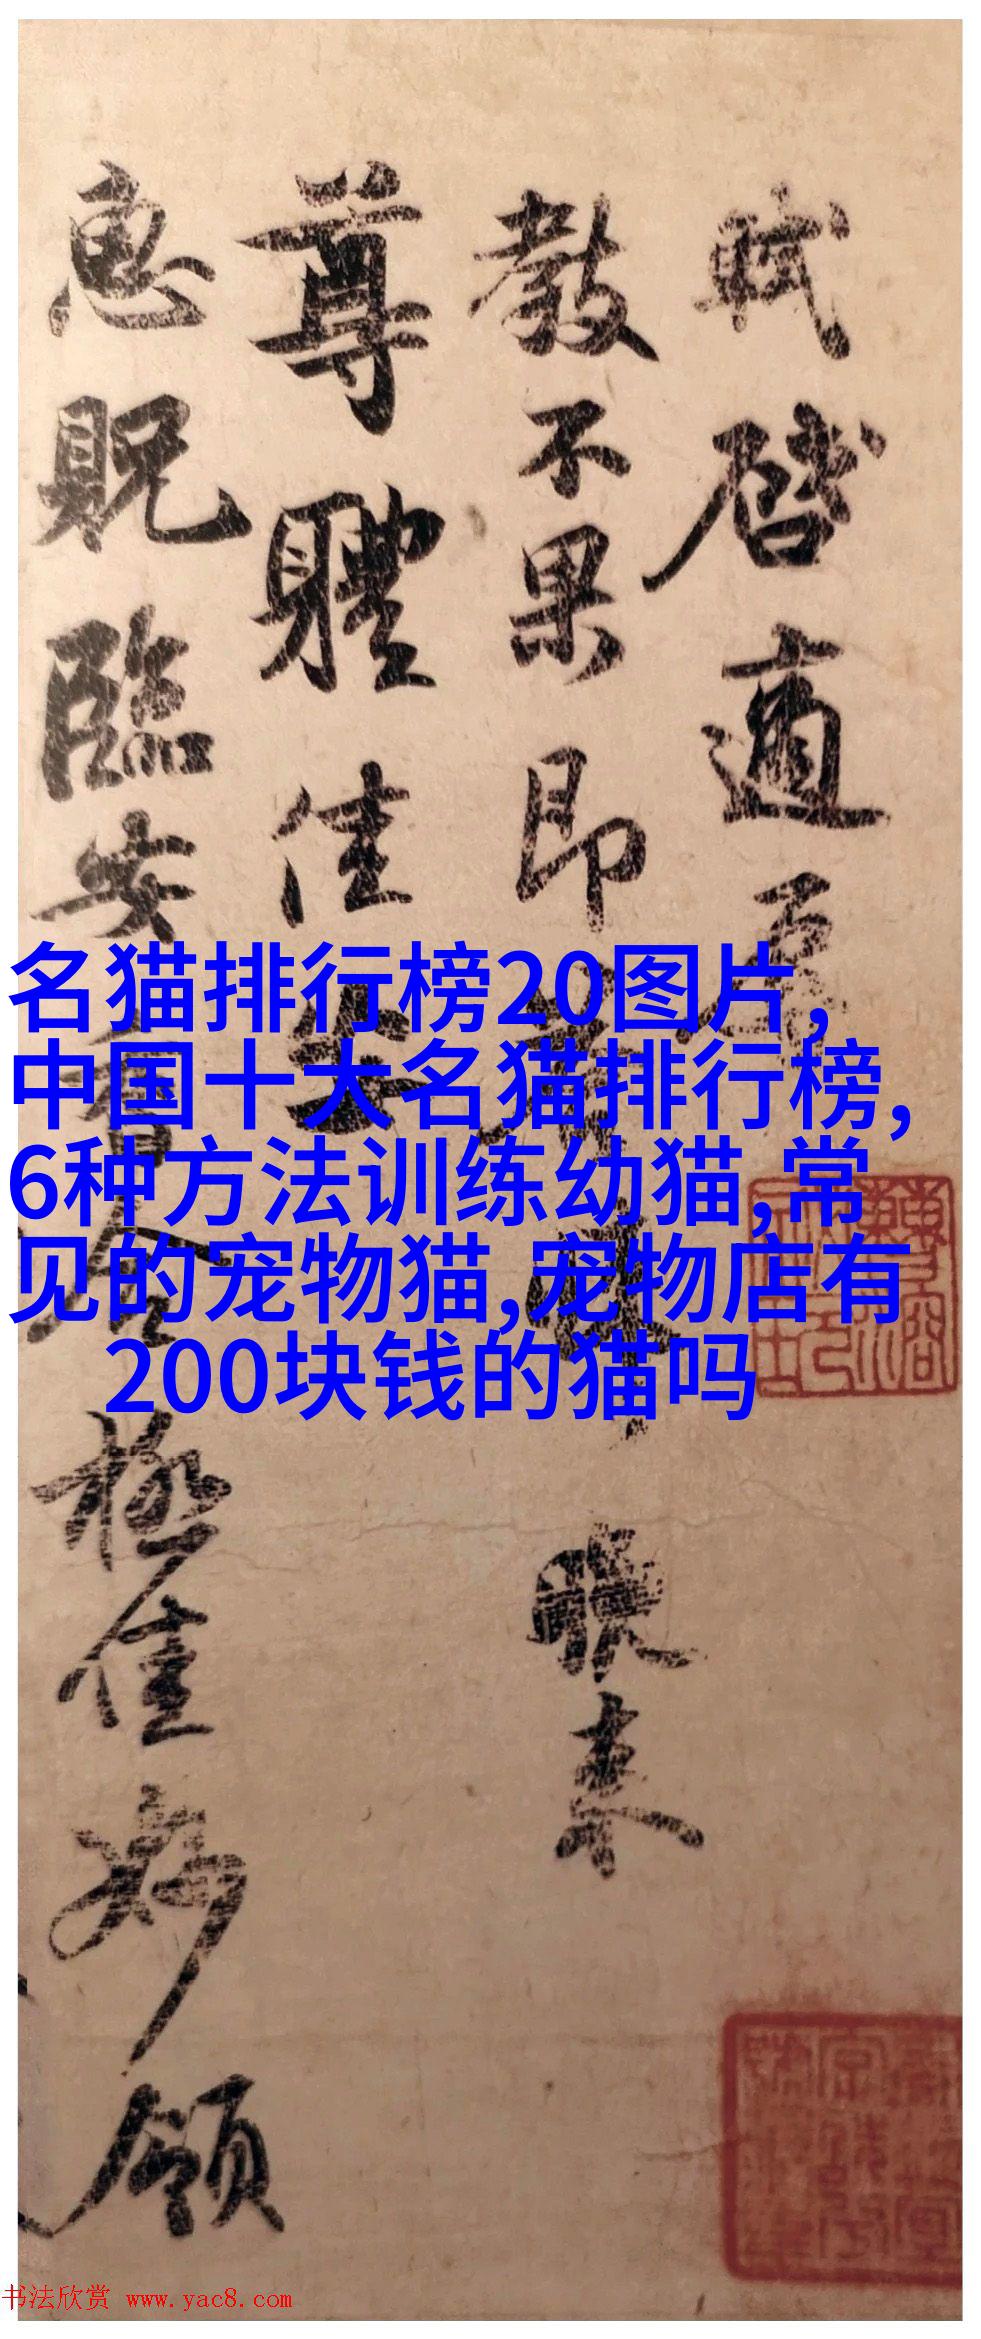 軾啓適辱
教不果即晚来
尊體佳安
惠貺臨安香合極佳妙領
名猫排行榜20图片,
中国十大名猫排行榜,
6种方法训练幼猫,常
见的宠物猫,宠物店有
200块钱的猫吗
书法欣赏 www.yac8.com